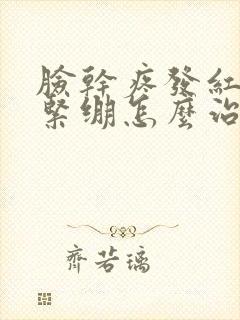 臉幹疼發紅
緊繃怎麼治
齊若璃